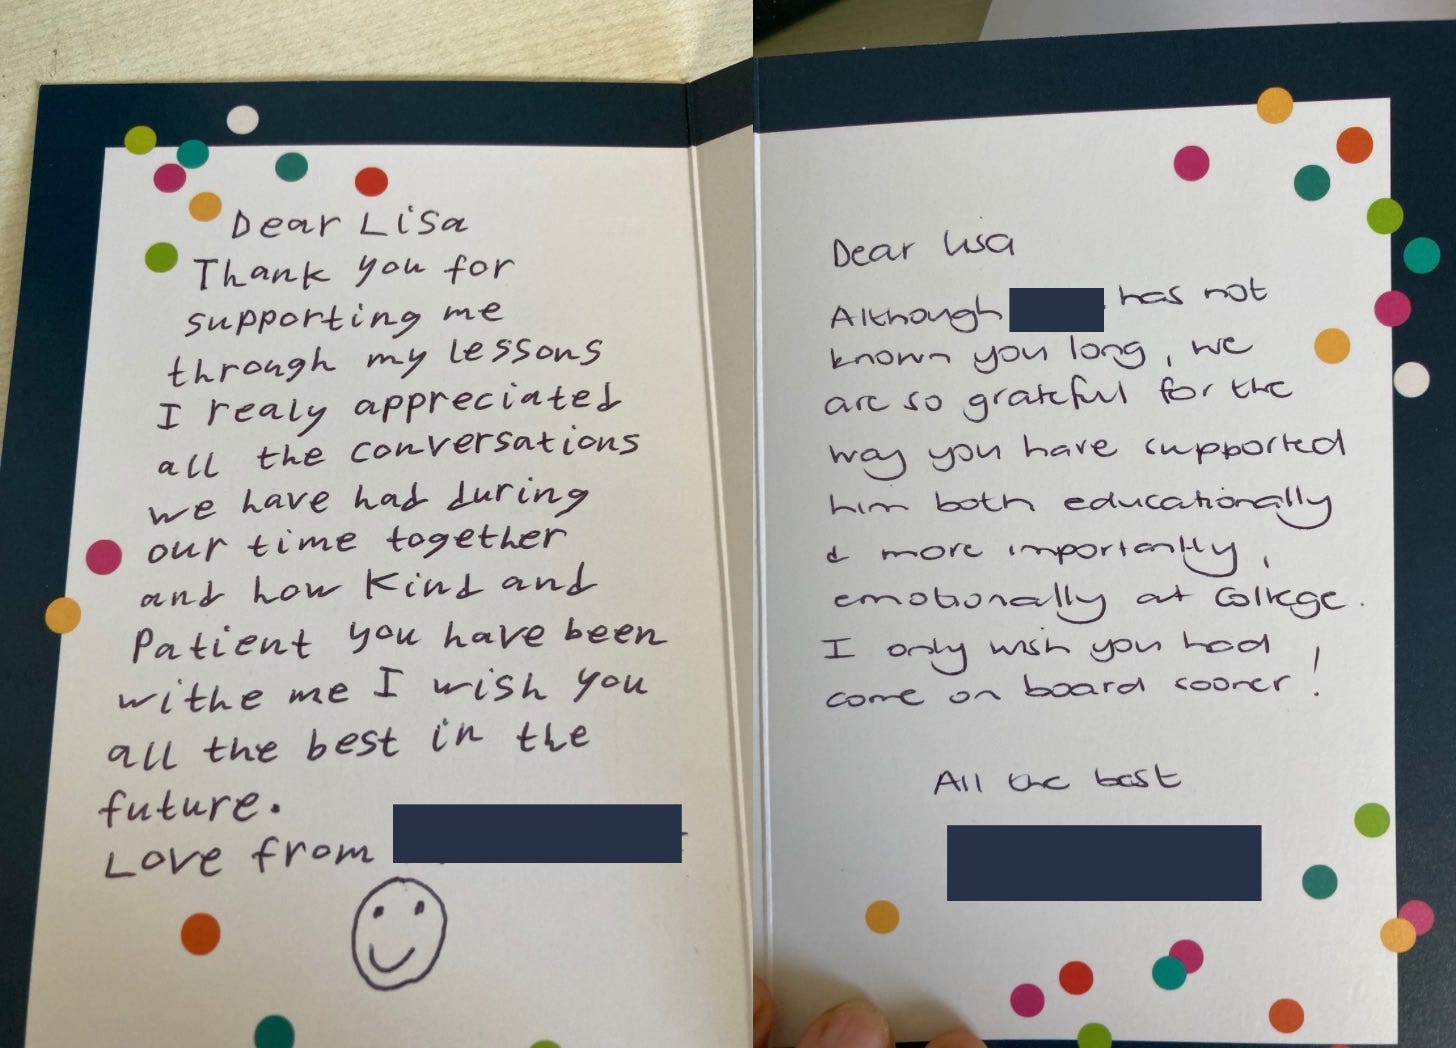 Dear Lisa
Thank you for
supporting me
through my lessons
I realy appreciated
all the conversations
we have had during
our time together
and how Kind and
Patient you have been
withe me I wish you
all the best in the
future.
Love from
Dear Lisa
Although has not
known you long, we
are so grateful for the
way you have supported
him both educationally
& more importantly,
emotionally at College.
I only wish you had
come on board sooner!
All the best